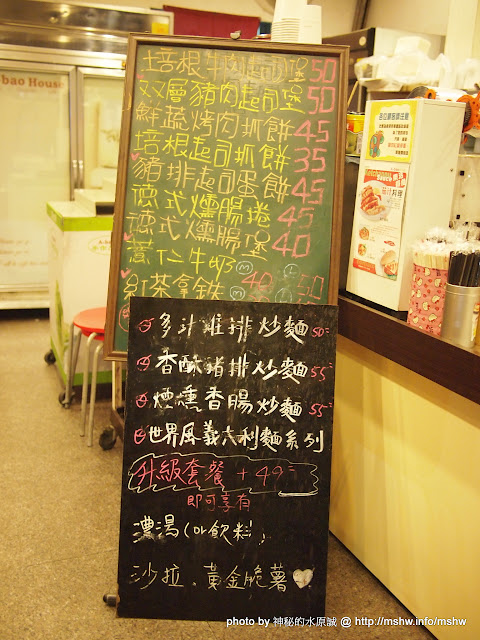 bao House
培根牛肉起司堡 50
双層豬肉起司堡 50
鮮蔬烤肉抓餅 45
培根起司抓餅 35
豬排起司蛋餅 45
德式燻腸捲 45
德式燻腸堡 40
薏仁牛奶
紅茶拿鐵 M 40 L 50
多汁雞排炒麵 50=
香酥豬排炒麵 55=
煙燻香腸炒麵 55=
世界風義大利麵系列
升級套餐 +49=
即可享有
濃湯(or飲料),
沙拉、黃金脆薯
photo by 神秘的水原誠 @ http://mshw.info/mshw